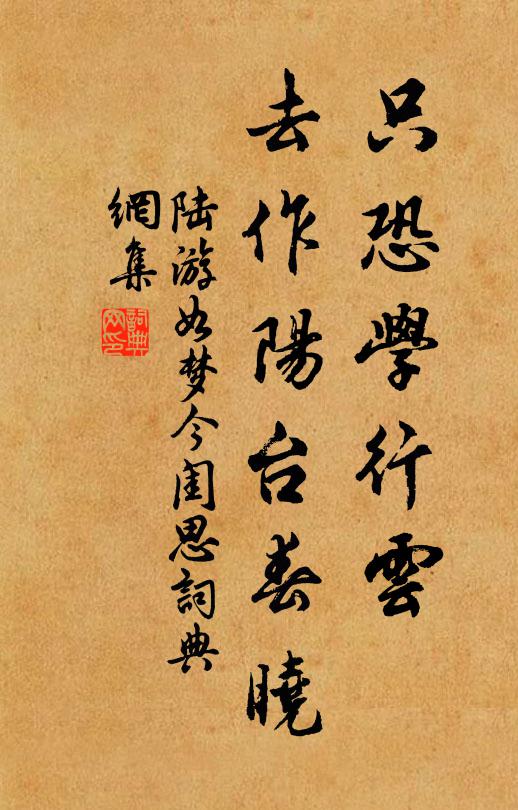 只恐學行雲
去作陽台春曉
陸游如梦令闺思詞典
網集
詞典
网印